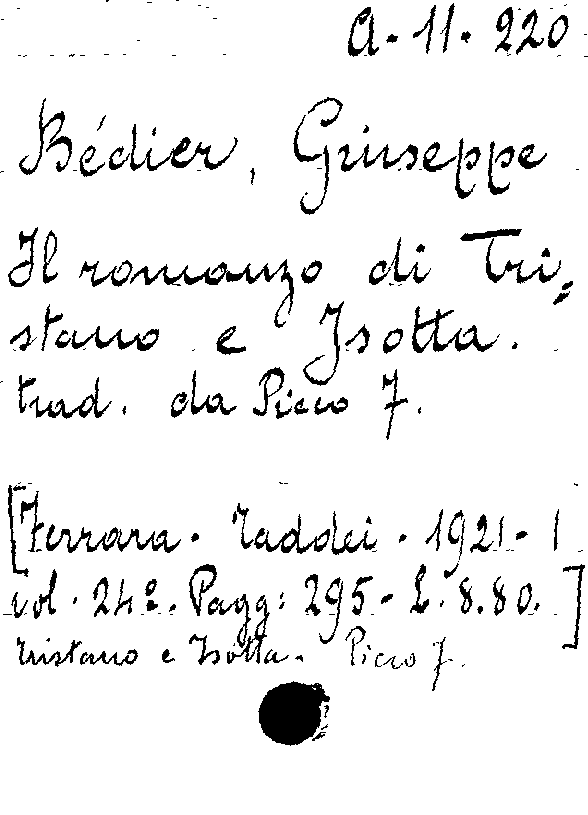 A. 11. 220
Bédier, Giuseppe
Il romanzo di Tri=
stano e Isotta.
trad. da Picco F.
[Ferrara. Taddei. 1921. 1
vol. 24º. Pagg: 295- L. 8.80.]
Tristano e Isotta. Picco F.